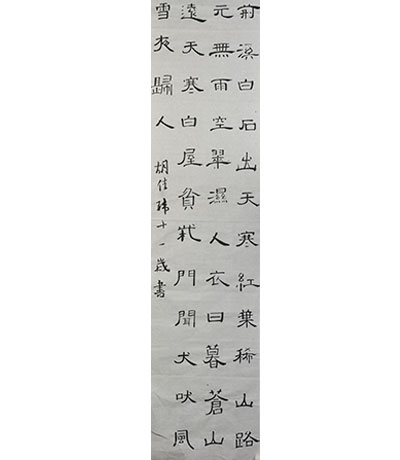 荊溪白石出天寒紅葉稀山路
元無雨空翠濕人衣日暮蒼山
遠天寒白屋貧柴門聞犬吠風
雪夜歸人
胡佳瑋十一歲書